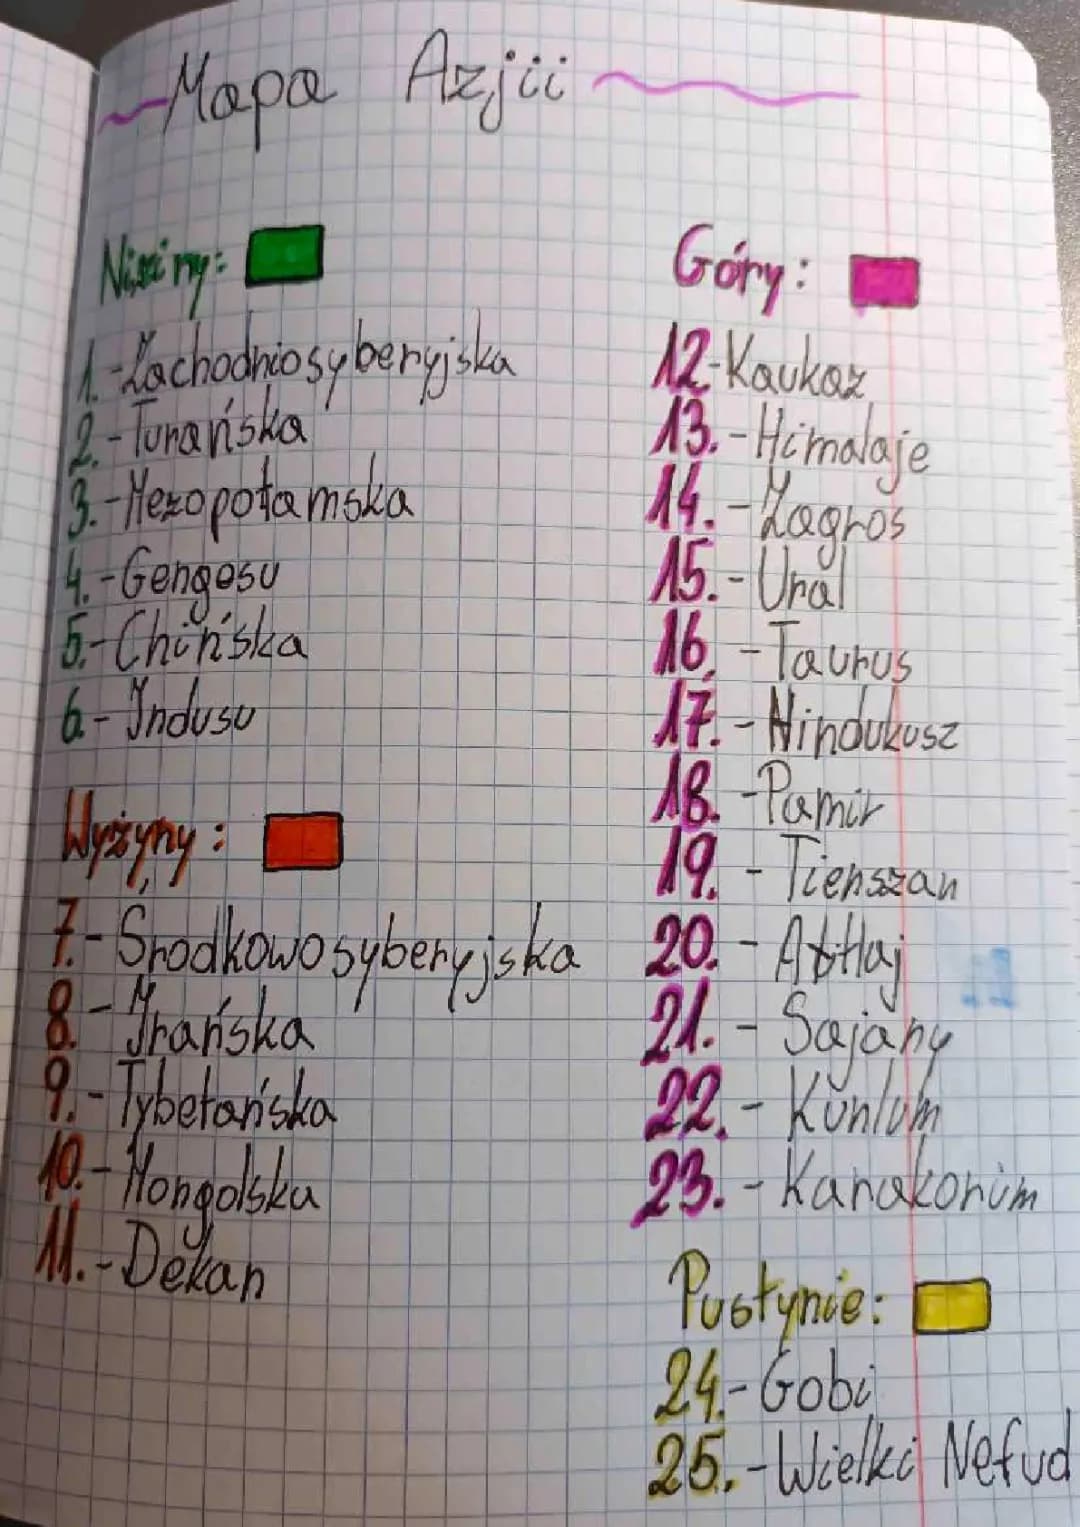 Mapa Azjii
Niziny:
1.-Zachodniosyberyjska
2.-Turańska
3.-Mezopotamska
4.-Gengesu
5.-Chińska
6.-Indusu
Wyżyny:
7.-Środkowosyberyjska
8.-Irańska
9.-Tybetańska
10.-Mongolska
11.-Dekan
Góry:
12-Kaukaz
13.-Himalaje
14.-Zagros
15.-Ural
16.-Taurus
17.-Hindukusz
18.-Pamir
19.-Tienszan
20.-Ałtaj
21.-Sajany
22.-Kunlum
23.-Karakorum
Pustynie:
24.-Gobi
25.-Wielki Nefud